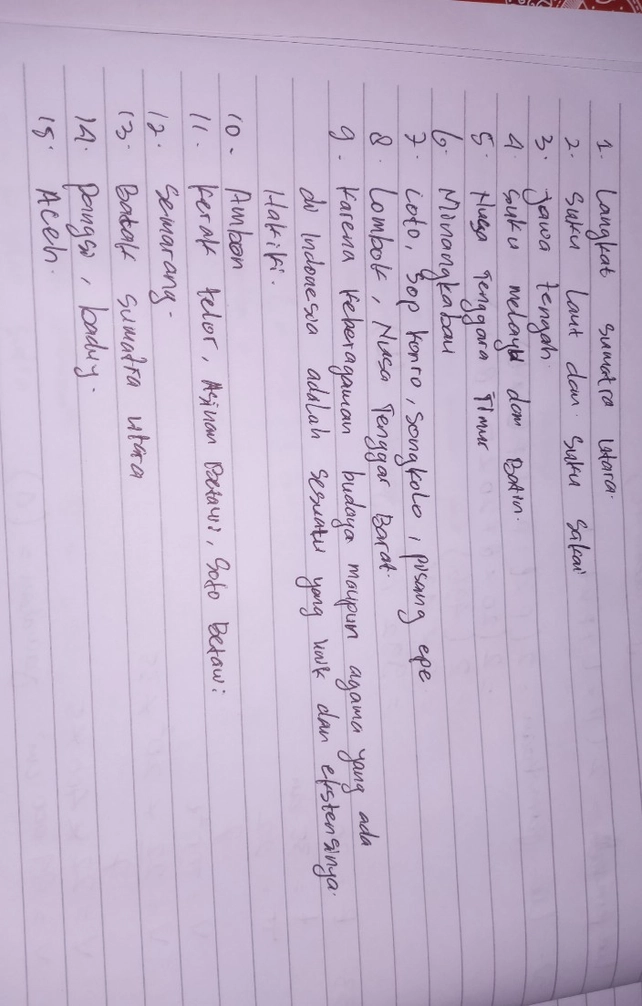 1. Langkat sumatra utara.
2. Suku laut dan suku sakai
3. Jawa tengah.
4. Suku melayu dan Batin.
5. Nusa Tenggara Timur
6. Minangkabau
7. Coto, Sop Konro, Songkolo, pisang epe
8. Lombok, Nusa Tenggar Barat.
9. Karena keberagaman budaya maupun agama yang ada
di Indonesia adalah sesuatu yang unik dan ekstensinya.
Hakiki.
10. Ambon
11. Kerak telor, Asinan Betawi, Soto Betawi
12. Semarang.
13. Batak sumatra utara
14. pangsi, baduy.
15. Aceh.